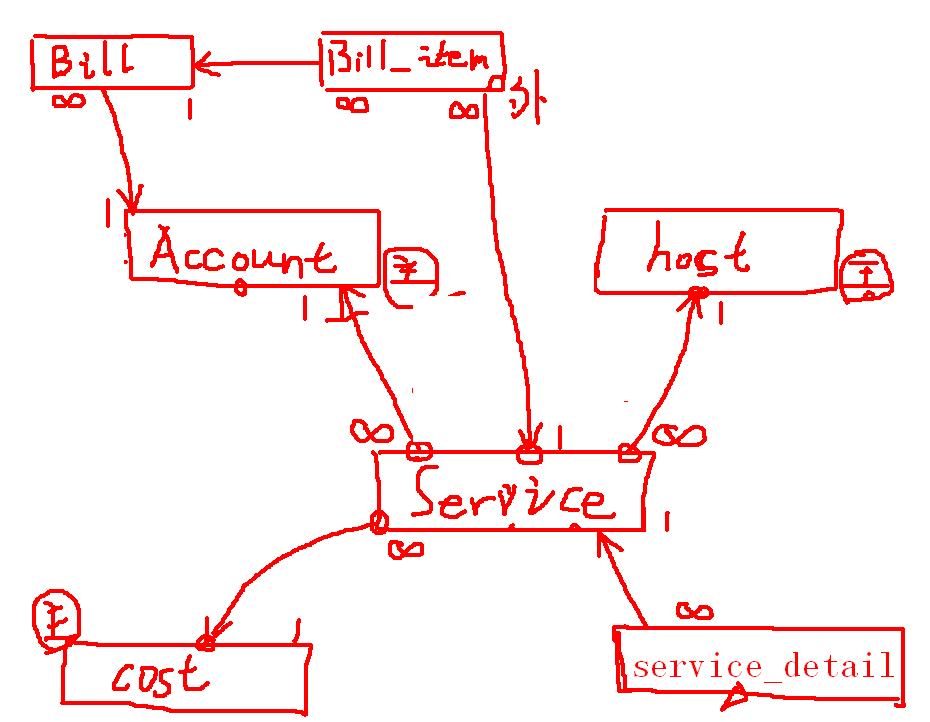 Bill
Bill_item
∞
1
∞
∞
外
1
Account
host
1
1
∞
1
∞
Service
∞
1
主
1
∞
cost
service_detail